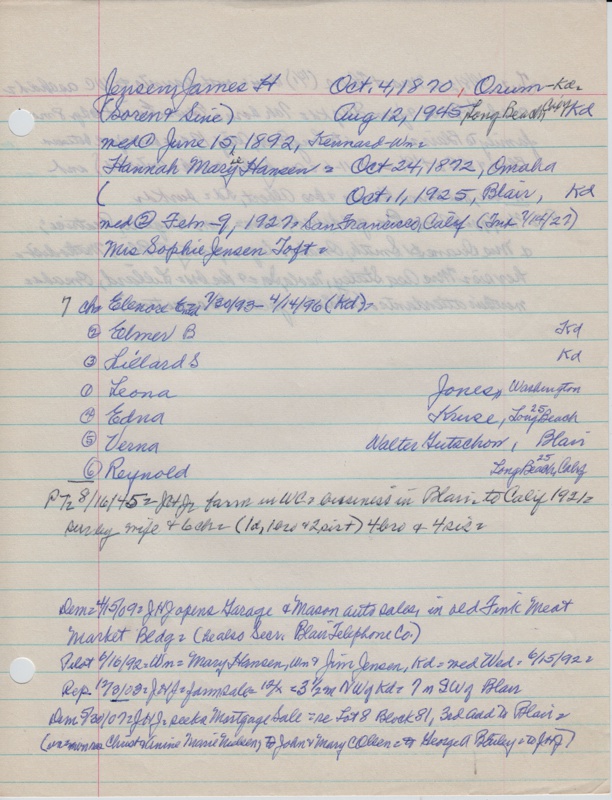 Jensen, James H Oct. 4, 1870, Orum - Kd.
(Soren & Sine) Aug 12, 1945, Long Beach Calif Kd
med ① June 15, 1892, Kennard - Wn =
Hannah Mary ie Hansen = Oct 24, 1872, Omaha
( Oct. 1, 1925, Blair, Kd
med ② Feb - 9, 1927, San Francisco, Calif (Ind 7/14/27)
Mrs Sophie Jensen Toft =
7 ch Elenore 7/30/93 - 4/14/96 (Kd) -
② Elmer B Kd
③ Lillard S Kd
① Leona Jones, Washington
④ Edna Kruse, Long Beach 25
⑤ Verna Walter Gutschow, Blair
⑥ Reynold Long Beach, Calif 25
PT2 8/16/45 = JHJ farm in WC & business in Blair - to Calif 1921 =
surv by wife & 6 ch = (1d, 1bro & 2 sist) 4 bro & 4 sis =
Dem = 4/15/09 = JHJ opens Garage & Mason auto sales, in old Fink Meat
Market Bldg = (he also Secr. Blair Telephone Co.)
Pilot 6/16/92 = Wn = Mary Hansen, Wn & Jim Jensen, Kd = med Wed = 6/15/92 =
Rep. JHJ = farm sale = = 3 1/2 m NW of Kd = 7 m SW of Blair
Dem 5/30/07 = JHJ seeks Mortgage Sale = re Lot 8 Block 81, 3rd add to Blair =
Christ & Anine Marie Nielsen, to John & Mary C Olsen = to George A = to JHJ)